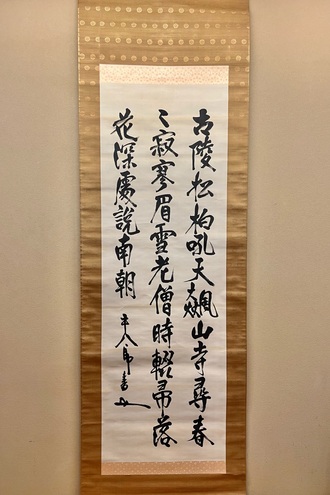 古陵松柏吼天飆山寺尋春
〻寂寥眉雪老僧時輟帚落
花深處說南朝
平八郎書